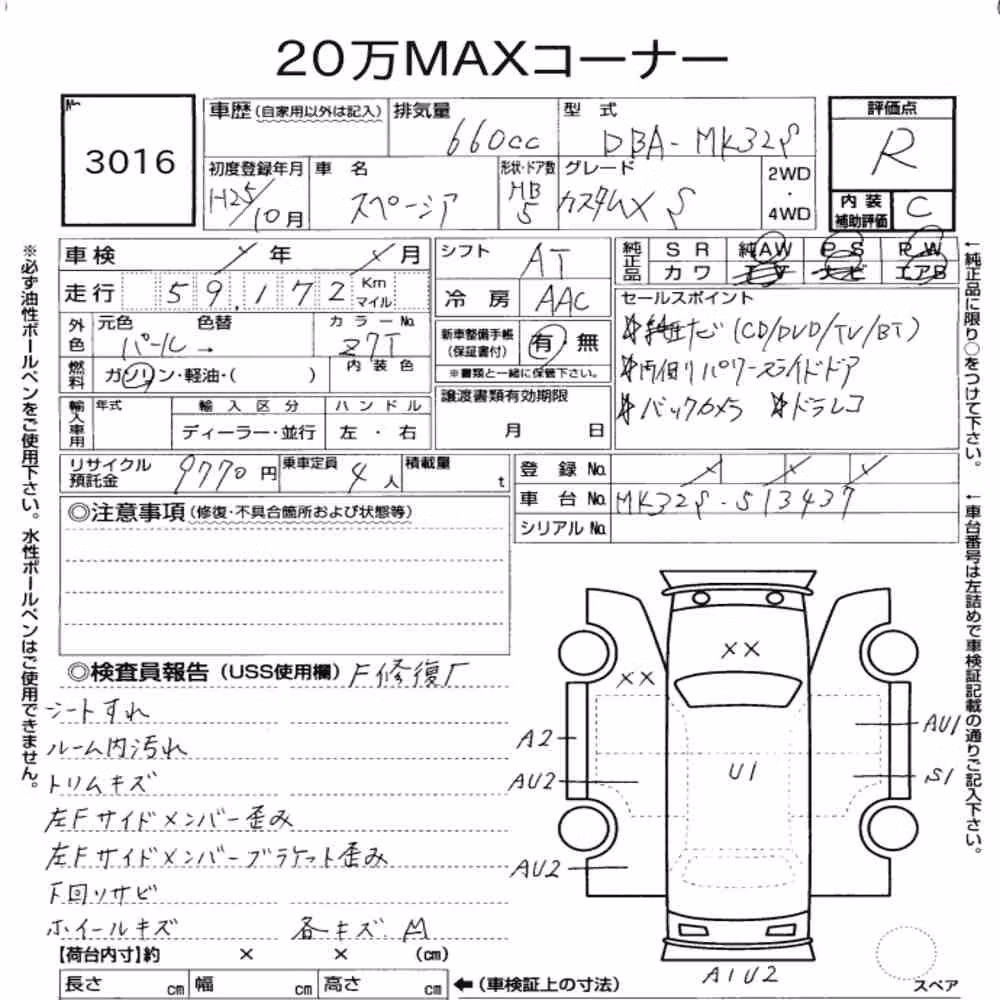 20万MAXコーナー
No. 3016
車歴 (自家用以外は記入) 排気量 660cc 型式 DBA-MK32S
評価点 R
初度登録年月 H25/10月 車名 スペーシア 形状・ドア数 HB 5 グレード カスタムX S 2WD・4WD
内装補助評価 C
車検 年 月 シフト AT
純正品 SR 純AW P-S P.W
カワ エアB
走行 59,172 Km マイル 冷房 AAC
外色 元色 パール→ 色替 カラーNo. Z7T
新車整備手帳 (保証書付) 有・無
※書類と一緒に保管下さい。
内装色
燃料 ガソリン・軽油・( )
セールスポイント
純正ナビ (CD/DVD/TV/BT)
両側パワースライドドア
バックカメラ ドラレコ
譲渡書類有効期限 月 日
輸入車用 年式 輸入区分 ハンドル
ディーラー・並行 左・右
リサイクル預託金 9770円 乗車定員 4人 積載量 t
登録No.
車台No. MK32S-513437
シリアルNo.
※必ず油性ボールペンをご使用下さい。水性ボールペンはご使用できません。
←純正品に限り○をつけて下さい。
←車台番号は左詰めで車検証記載の通りご記入下さい。
◎注意事項 (修復・不具合箇所および状態等)
◎検査員報告 (USS使用欄) F修復歴
シートすれ
ルーム内汚れ
トリムキズ
左Fサイドメンバー歪み
左Fサイドメンバーブラケット歪み
下回りサビ
ホイールキズ 各キズ M
XX
XX
A2
AU1
AU2
U1
S1
AU2
A1U2
スペア
【荷台内寸】約 × × (cm)
長さ cm 幅 cm 高さ cm ←(車検証上の寸法)